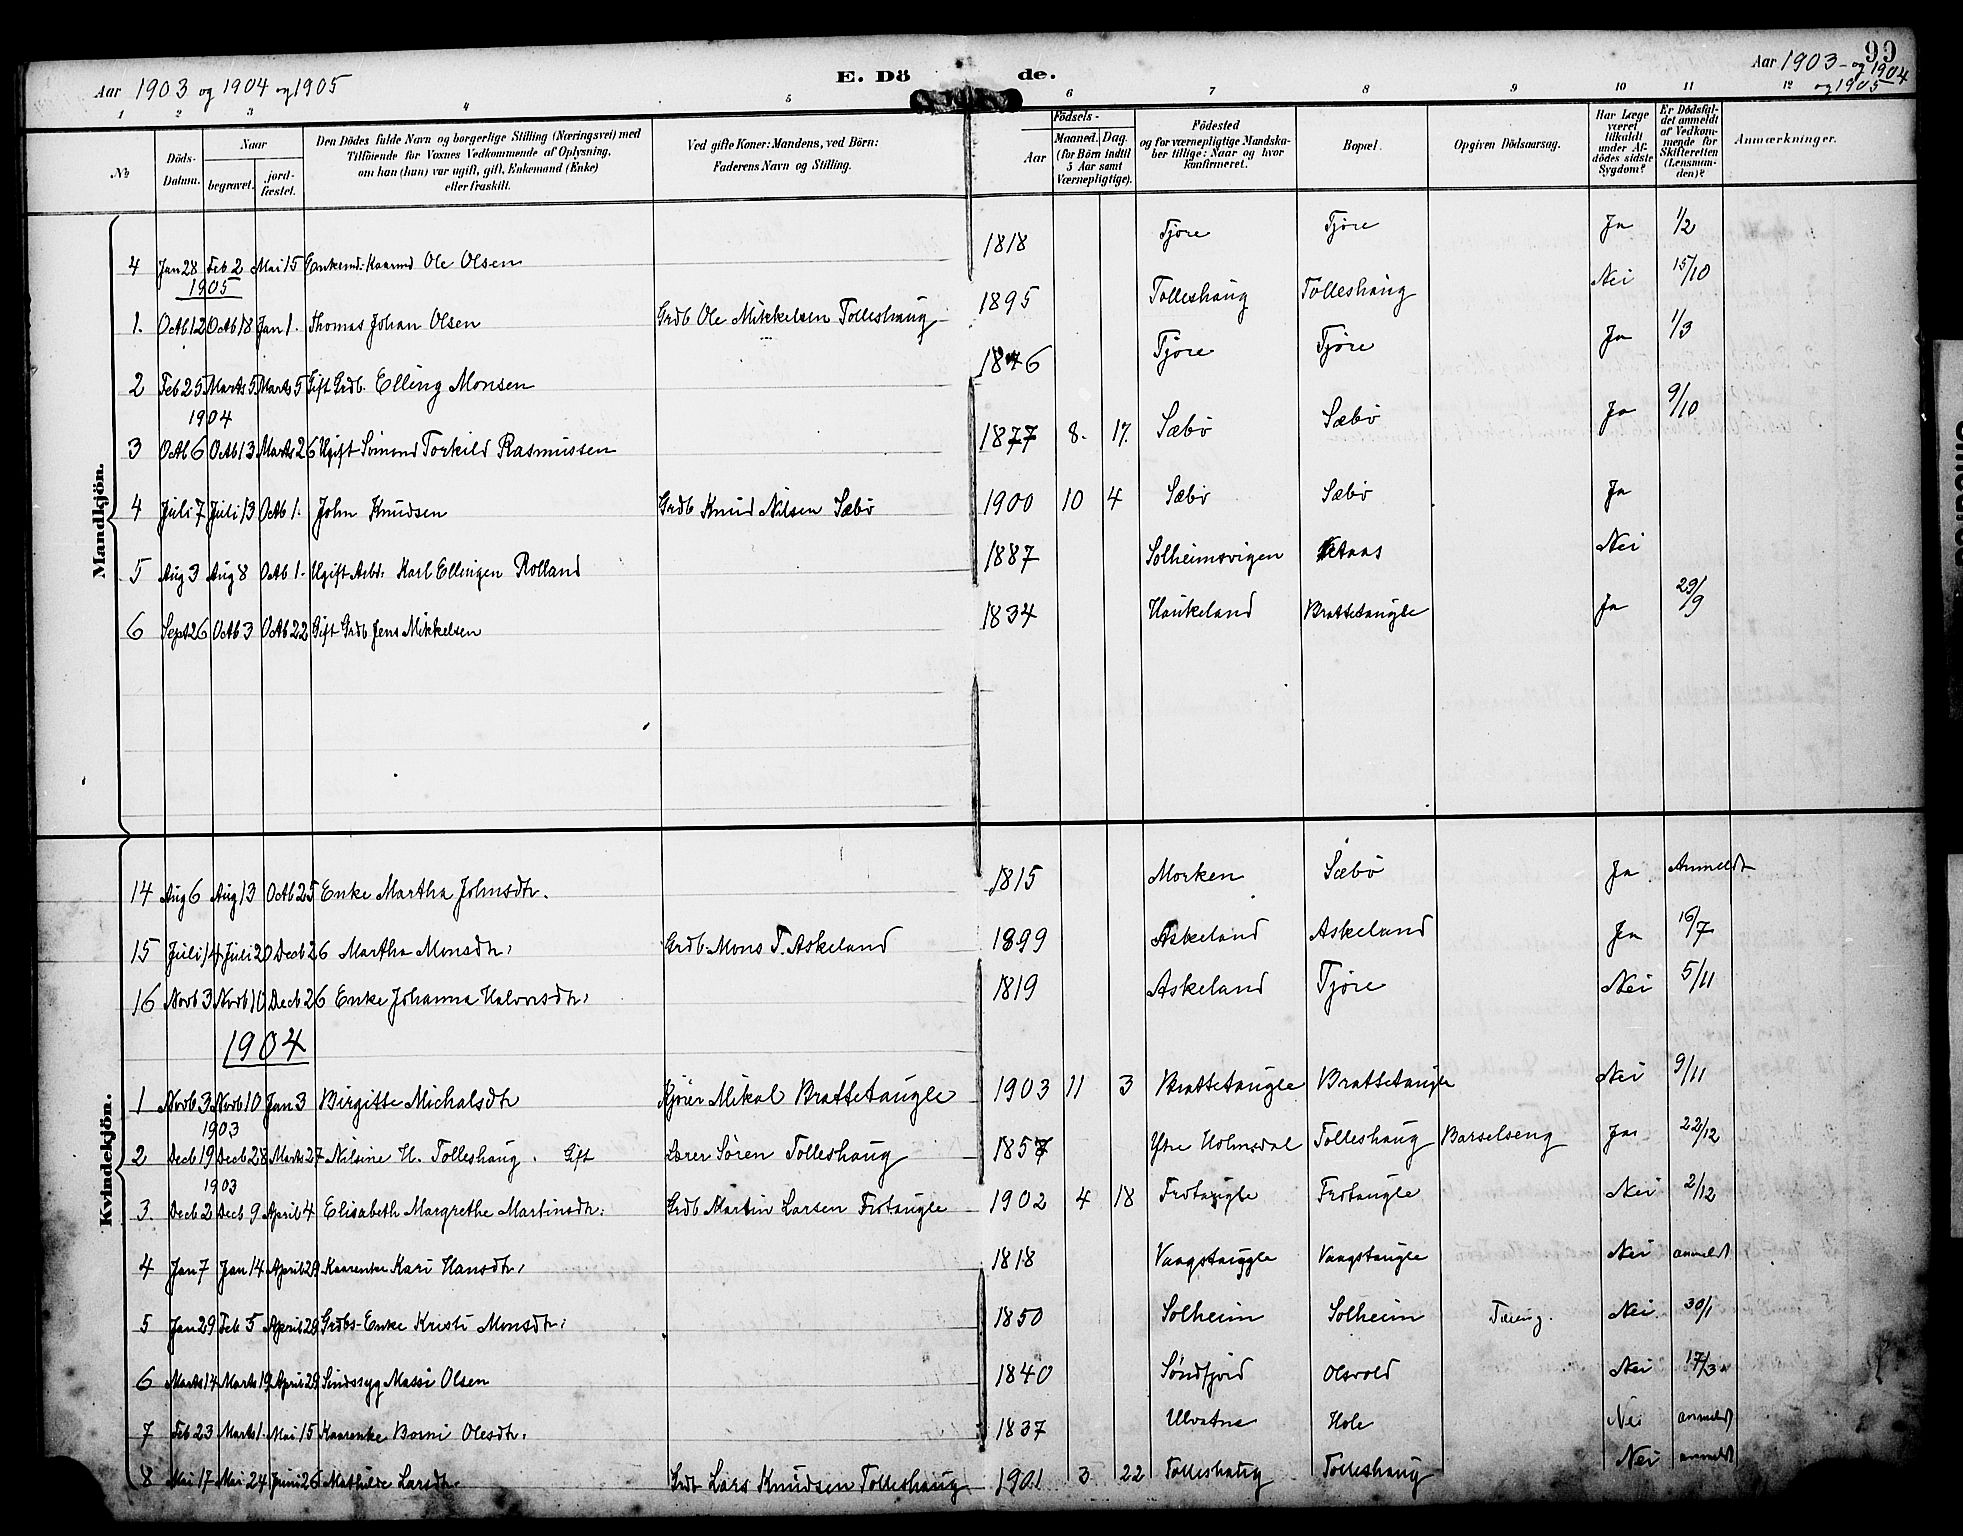 Aar 1903 og 1904 og 1905 E. Dö de. Aar 1903- og 1904 99
og 1905
1 2 3 4 5 6 7 8 9 10 11 12
No
Döds-Datum.
Naar
begravet. jordfæstet.
Den Dödes fulde Navn og borgerlige Stilling (Næringsvei) med
Tilföiende for Voxnes Vedkommende af Oplysning,
om han (hun) var ugift, gift, Enkemand (Enke)
eller fraskilt.
Ved gifte Koner: Mandens, ved Börn:
Faderens Navn og Stilling.
Födsels-
Aar
Maaned. Dag.
(for Börn indtil
5 Aar samt
Værnepligtige).
Födested
og for værnepligtige Mandska-
ber tillige: Naar og hvor
konfirmeret.
Bopæl.
Opgiven Dödsaarsag.
Har Læge
været
tilkaldt
under Af-
dödes sidste
Sygdom?
Er Dödsfal-
det anmeldt
af Vedkom-
mende for
Skifteretten
(Lensman-
den)?
Anmærkninger.
Mandkjön.
4 Jan 28 Feb 2 Mai 15 Enkemd. Kaarmd Ole Olsen 1818 Tjøre Tjøre Ja 1/2
1905
1. Octb 12 Octb 18 Jan 1. Thomas Johan Olsen Grdb Ole Mikkelsen Tolleshaug 1895 Tolleshaug Tolleshaug Nei 15/10
2 Feb 25 Marts 5 Marts 5 Gift Grdb. Elling Monsen 1846 Tjøre Tjøre Ja 1/3
1904
3 Octb 6 Octb 13 Marts 26 Ugift Sømand Torkild Rasmussen 1877 8. 17. Sæbø Sæbø Ja 9/10
4 Juli 7 Juli 13 Octb 1. John Knudsen Grdb Knud Nilsen Sæbø 1900 10 4 Sæbø Sæbø Ja
5 Aug 3 Aug 8 Octb 1. Ugift Arbd. Karl Ellingen Rolland 1887 Solheimsvigen Nei
6 Sept 26 Octb 3 Octb 22 Gift Grdb Jens Mikkelsen 1834 Haukeland Brattetaugle Ja 29/9
Kvindekjön.
14 Aug 6 Aug 13 Octb 25 Enke Martha Johnsdtr. 1815 Morken Sæbø Ja Anmeldt
15 Juli 14 Juli 20 Decb 26 Martha Monsdtr. Grdb. Mons T. Askeland 1899 Askeland Askeland Ja 16/7
16 Novb 3 Novb 10 Decb 26 Enke Johanna Halvorsdtr. 1819 Askeland Tjøre Nei 5/11
1904
1 Novb 3 Novb 10 Jan 3 Birgitte Michalsdtr Mikal Brattetaugle 1903 11 3 Brattetaugle Brattetaugle Nei 9/11
1903
2 Decb 19 Decb 28 Marts 27 Nilsine H. Tolleshaug. Gift Lærer Søren Tolleshaug 1857 Ytre Holmedal Tolleshaug Barselseng Ja 22/12
1903
3. Decb 2 Decb 9 April 4 Elisabeth Margrethe Martinsdtr. Grdb Martin Larsen Frotaugle 1902 4 18 Frotaugle Frotaugle Nei 2/12
4 Jan 7 Jan 14 April 29 Kaarenke Kari Hansdtr. 1818 Vaagstaugle Vaagstaugle Nei anmeldt
5 Jan 29 Feb 5 April 29 Grdbs-Enke Kristi Monsdtr. 1850 Solheim Solheim Tæring. Nei 30/1
6 Marts 14 Marts 19 April 29 Sindssyg Massi Olsen 1840 Søndfjord Olsvold Nei 17/3
7 Feb 23 Marts 1. Mai 15 Kaarenke Borni Olesdtr. 1837 Ulvatne Hole Nei anmeldt
8 Mai 17 Mai 24 Juni 26 Mathilde Larsdtr. Grdb Lars Knudsen Tolleshaug 1901 3 22 Tolleshaug Tolleshaug Nei anmeldt